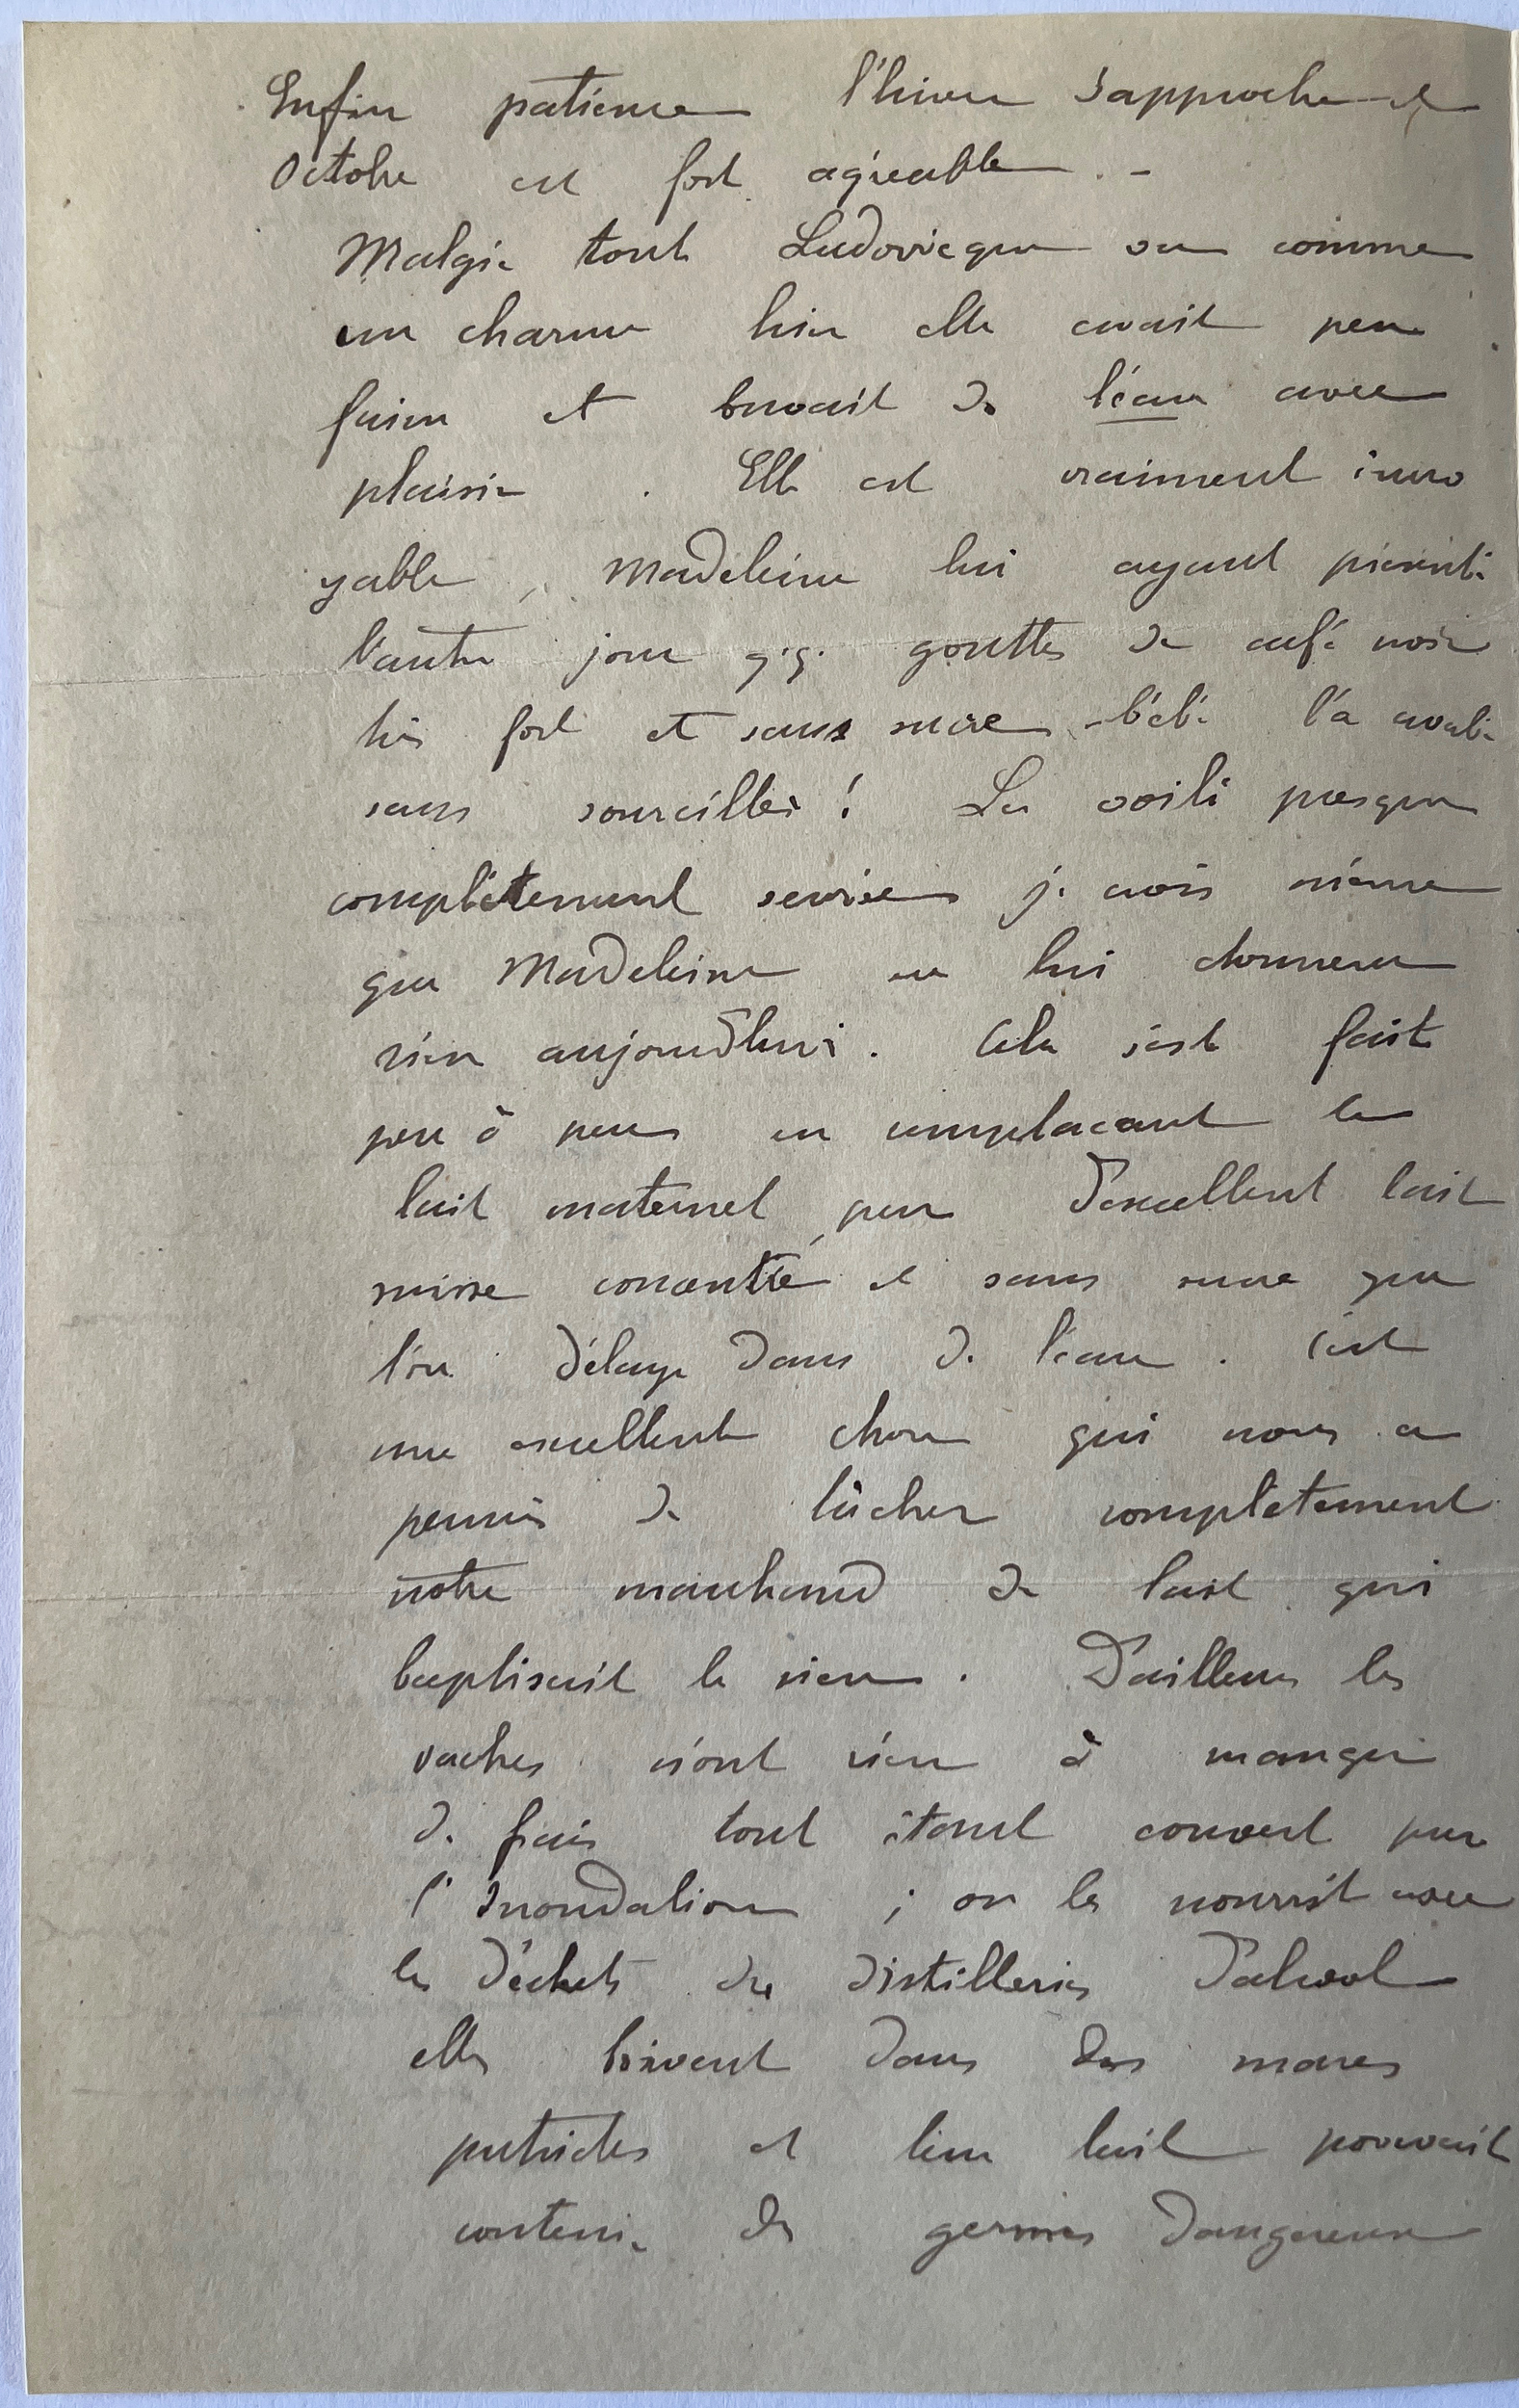 Enfin patience l'hiver s'approche et
Octobre est fort agréable . -
Malgré tout Ludovicque va comme
un charme hier elle avait peu
faim et buvait de l'eau avec
plaisir . Elle est vraiment incro
yable , Madeleine lui ayant présenté
l'autre jour q.q. gouttes de café noir
très fort et sans sucre bébé l'a avalé
sans sourciller ! La voilà presque
complètement sevrée je crois même
que Madeleine ne lui donnera
rien aujourd'hui . Cela s'est fait
peu à peu en remplacant le
lait maternel par d'excellent lait
suisse concentré et sans sucre que
l'on délaye dans de l'eau . C'est
une excellente chose qui nous a
permis de lâcher complètement
notre marchand de lait qui
baptisait le sien . D'ailleurs les
vaches n'ont rien à manger
de frais tout étant couvert par
l'Inondation ; on les nourrit avec
les déchets des distilleries d'alcool
elles boivent dans des mares
putrides et leur lait pouvait
contenir des germes dangereux